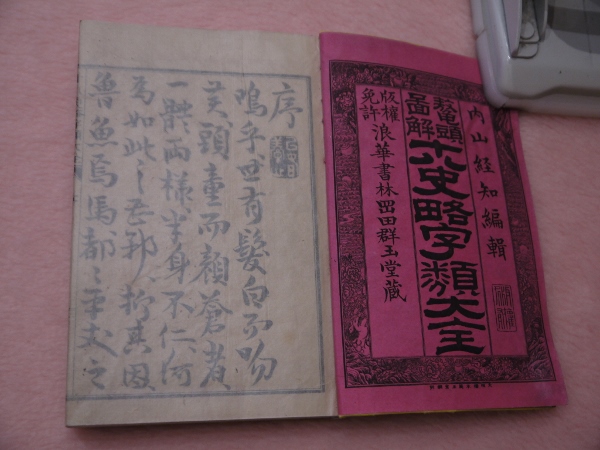 内山經知編輯
鼇頭圖解
十八史略字類大全
版權免許
浪華書林 岡田群玉堂藏
序
嗚乎世有髮白不吻
黃頭童而顏蒼者
一體兩樣半身不仁何
為如此之甚邪抑真因
魯魚焉馬都之年支之